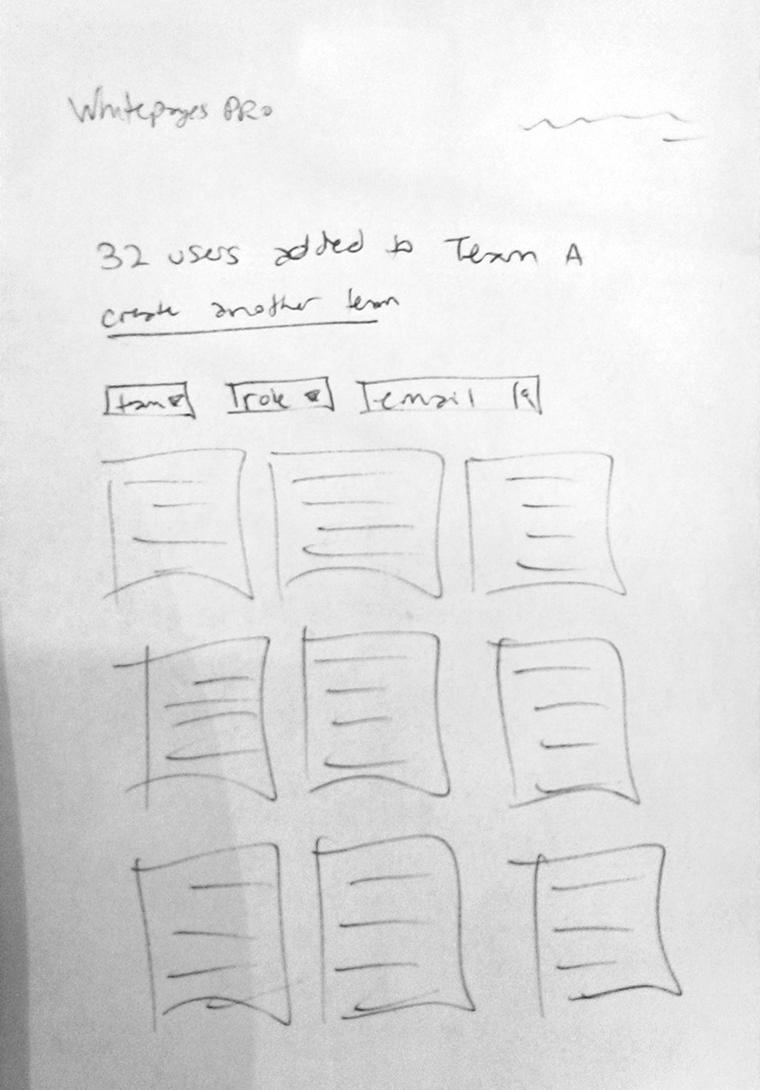 Whitepages PRO
32 users added to Team A
create another team
team
role
email